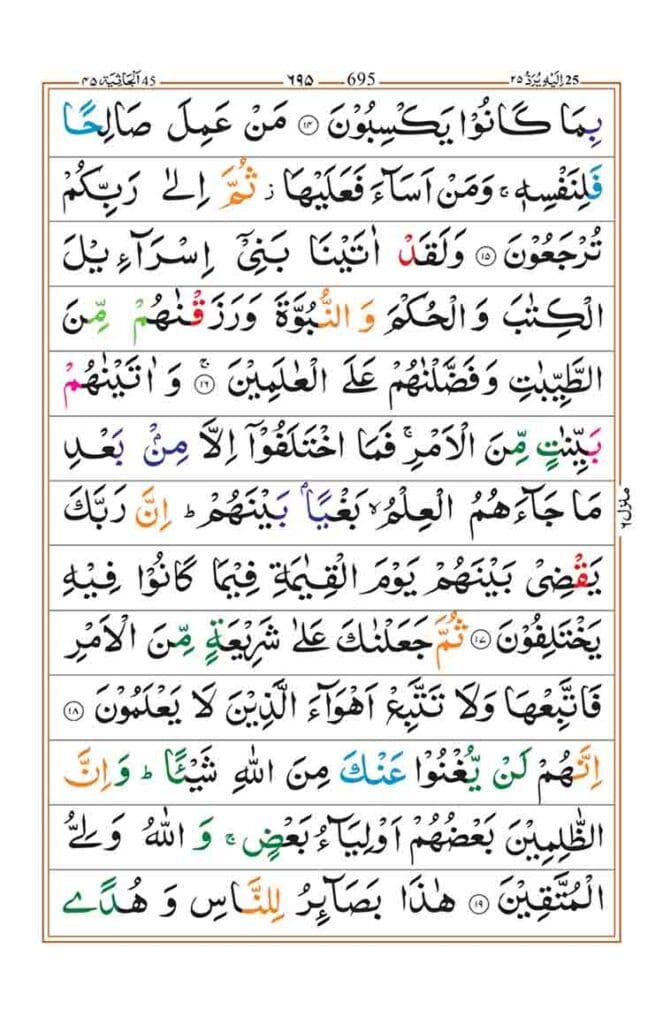 اَلْجَاثِيَة ٤٥ 45 ٦٩٥ 695 اِلَيْهِ يُرَدُّ ٢٥ 25
بِمَا كَانُوْا يَكْسِبُوْنَ ۝١٤ مَنْ عَمِلَ صَالِحًا
فَلِنَفْسِهٖ ۚ وَمَنْ اَسَآءَ فَعَلَيْهَا ؗ ثُمَّ اِلٰى رَبِّكُمْ
تُرْجَعُوْنَ ۝١٥ وَلَقَدْ اٰتَيْنَا بَنِىْۤ اِسْرَآءِيْلَ
الْكِتٰبَ وَالْحُكْمَ وَالنُّبُوَّةَ وَرَزَقْنٰهُمْ مِّنَ
الطَّيِّبٰتِ وَفَضَّلْنٰهُمْ عَلَى الْعٰلَمِيْنَ ۝١٦ ۚ وَاٰتَيْنٰهُمْ
بَيِّنٰتٍ مِّنَ الْاَمْرِ ۚ فَمَا اخْتَلَفُوْۤا اِلَّا مِنْۢ بَعْدِ
مَا جَآءَهُمُ الْعِلْمُ ۙ بَغْيًاۢ بَيْنَهُمْ ؕ اِنَّ رَبَّكَ
يَقْضِىْ بَيْنَهُمْ يَوْمَ الْقِيٰمَةِ فِيْمَا كَانُوْا فِيْهِ
يَخْتَلِفُوْنَ ۝١٧ ثُمَّ جَعَلْنٰكَ عَلٰى شَرِيْعَةٍ مِّنَ الْاَمْرِ
فَاتَّبِعْهَا وَلَا تَتَّبِعْ اَهْوَآءَ الَّذِيْنَ لَا يَعْلَمُوْنَ ۝١٨
اِنَّهُمْ لَنْ يُّغْنُوْا عَنْكَ مِنَ اللّٰهِ شَيْـًٔا ؕ وَاِنَّ
الظّٰلِمِيْنَ بَعْضُهُمْ اَوْلِيَآءُ بَعْضٍ ۚ وَاللّٰهُ وَلِىُّ
الْمُتَّقِيْنَ ۝١٩ هٰذَا بَصَآئِرُ لِلنَّاسِ وَهُدًى
منزل ٦